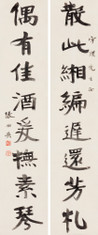 散此緗編遲還芳札
偶有佳酒爰橅素琴